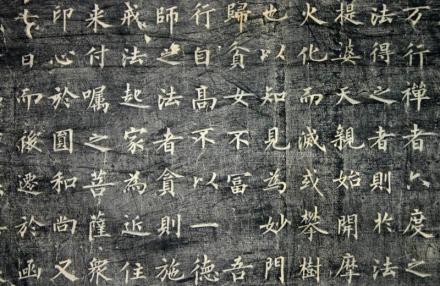 万行禅者六度之
法得之者則於法
提婆天親始開摩
火化而滅或攀樹
也以知見為妙門
歸貧女不富吾
行自高不以一德
師之法者貧則施
戒法起家為近住
来付嘱之菩薩衆
印心於圓和尚又
七日而後遷於函